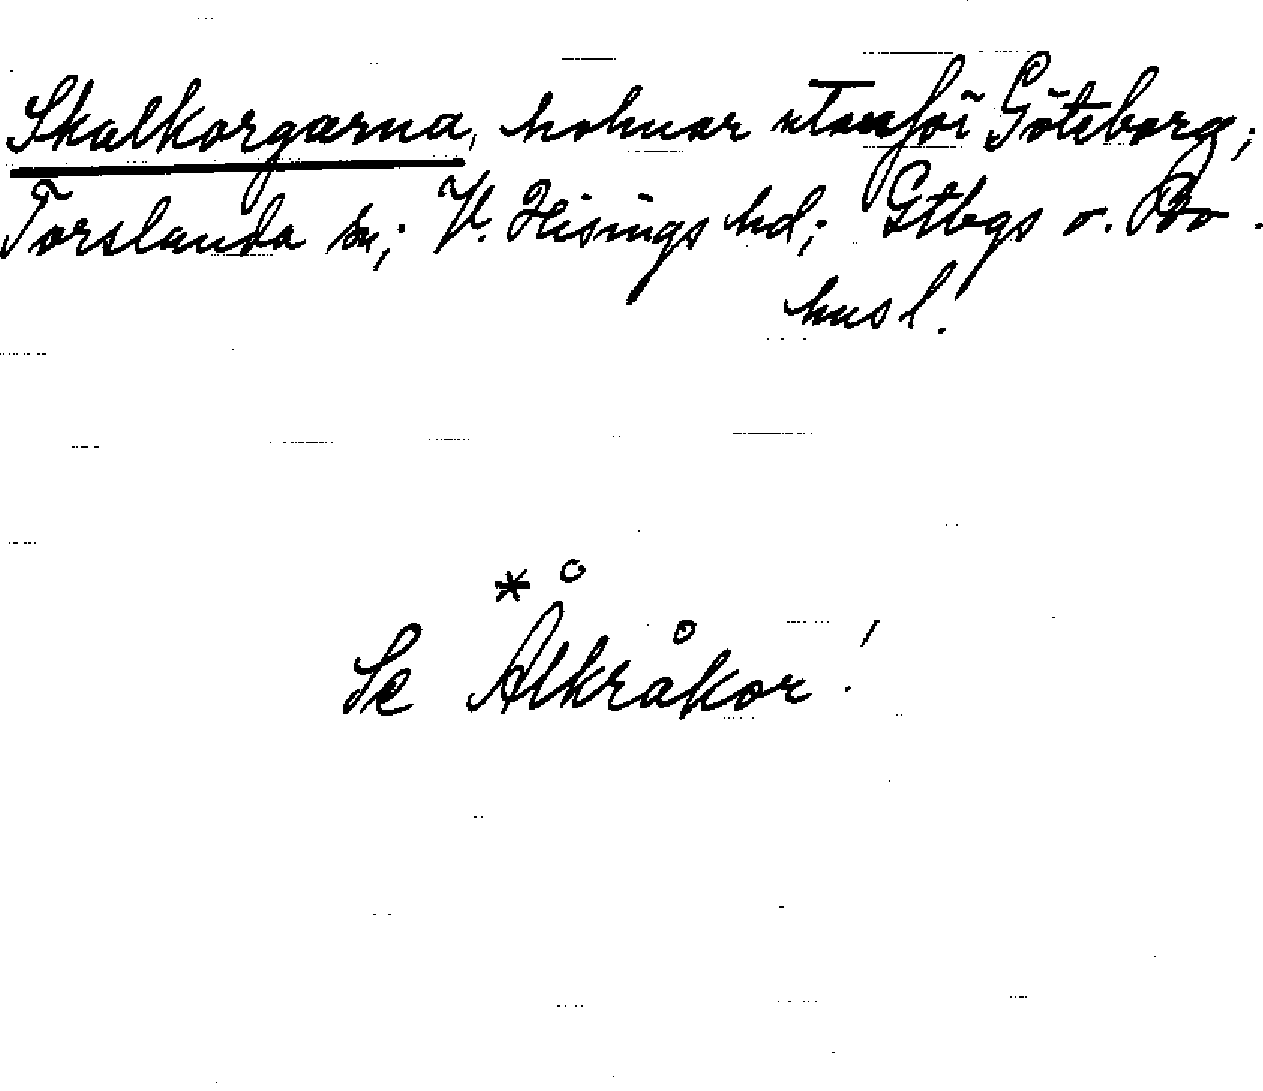 Skalkorgarna, holmar utanför Göteborg;
Torslanda sn; V. Hisings hd; Gtbgs o. Bo.
husl.
Se *Ålkråkor!